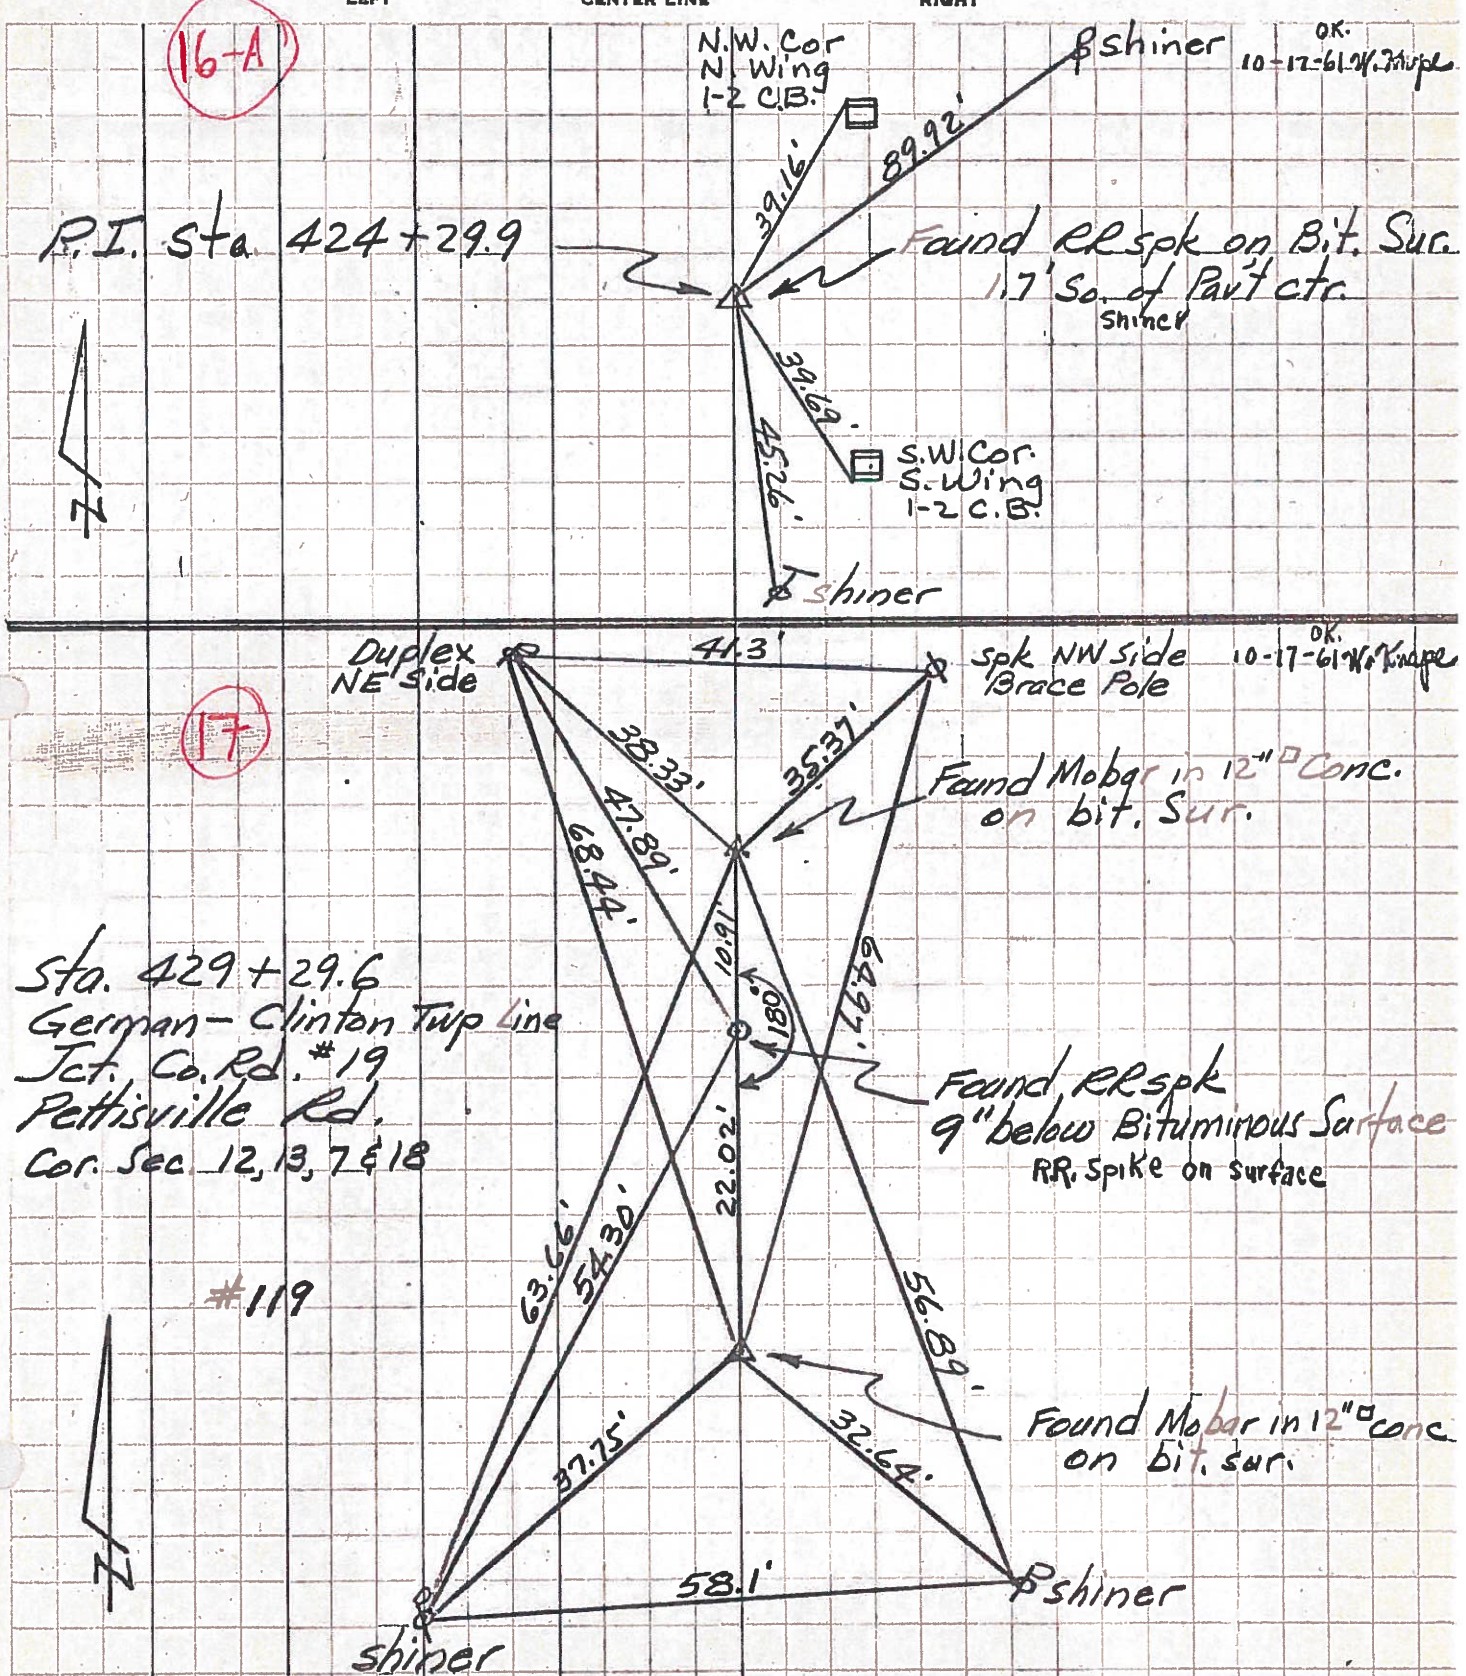 LEFT
CENTER LINE
RIGHT
16-A
N.W. Cor
N. Wing
1-2 C.B.
shiner
OK.
10-17-61 W. Knape
39.16'
89.92'
P.I. Sta. 424+29.9
Found RRspk on Bit. Sur.
1.7' So. of Pav't ctr.
shiner
39.69'
45.26'
S.W. Cor.
S. Wing
1-2 C.B.
N
shiner
Duplex
NE Side
41.3'
Spk NW Side
Brace Pole
OK.
10-17-61 W. Knape
17
38.33'
35.37'
47.89'
68.44'
Found Mobar in 12"□ Conc.
on bit. Sur.
10.91'
64.97'
180°
Sta. 429+29.6
German-Clinton Twp Line
Jct. Co. Rd. #19
Pettisville Rd.
Cor. Sec. 12, 13, 7 & 18
Found RRspk
9" below Bituminous Surface
RR. Spike on surface
22.02'
63.66'
54.30'
56.89'
#119
37.75'
32.64'
Found Mobar in 12"□ conc
on bit. sur.
N
58.1'
shiner
shiner